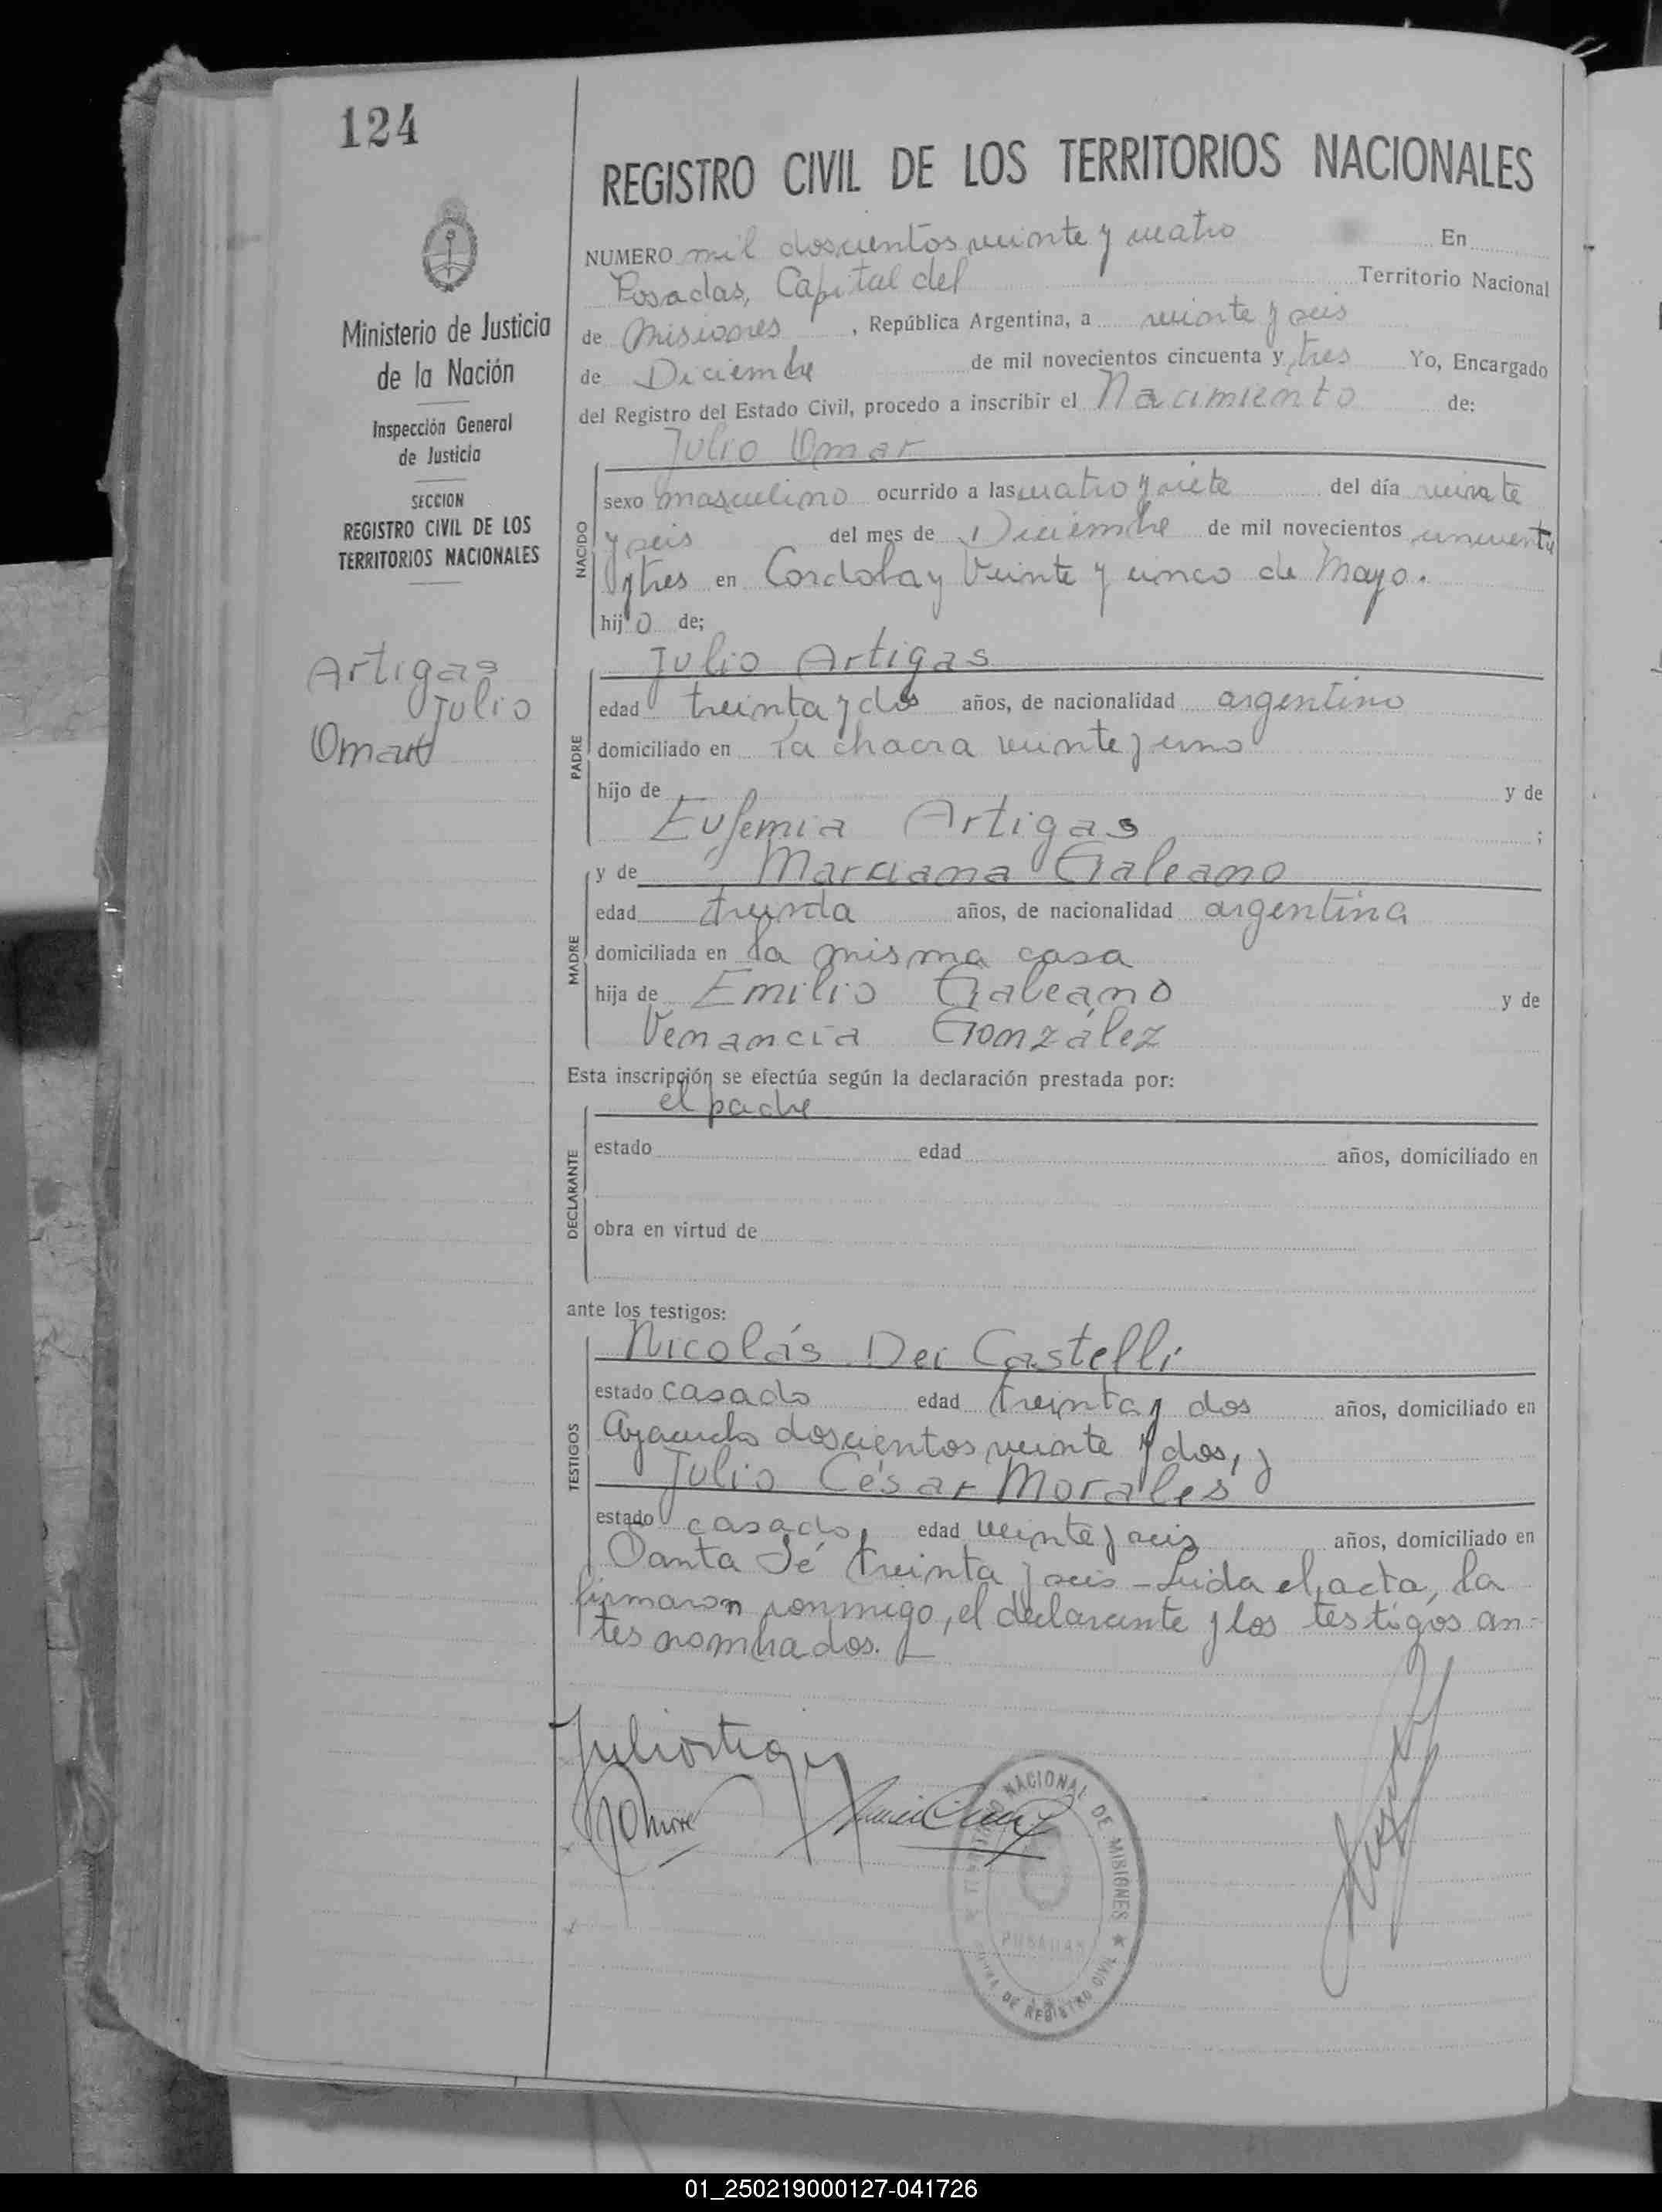 124
REGISTRO CIVIL DE LOS TERRITORIOS NACIONALES
Ministerio de Justicia
de la Nación
Inspección General
de Justicia
SECCION
REGISTRO CIVIL DE LOS
TERRITORIOS NACIONALES
Artigas
Julio
Omar
NUMERO mil doscientos veinte y cuatro En
Posadas, Capital del Territorio Nacional
de Misiones, República Argentina, a veinte y seis
de Diciembre de mil novecientos cincuenta y tres Yo, Encargado
del Registro del Estado Civil, procedo a inscribir el Nacimiento de:
Julio Omar
NACIDO
sexo masculino ocurrido a las cuatro y siete del día veinte
y seis del mes de Diciembre de mil novecientos cincuenta
y tres en Cordoba y Veinte y cinco de Mayo.
hijo de;
PADRE
Julio Artigas
edad treinta y dos años, de nacionalidad argentino
domiciliado en la chacra veinte y uno
hijo de y de
Eufemia Artigas ;
MADRE
y de Marciana Galeano
edad treinta años, de nacionalidad argentina
domiciliada en la misma casa
hija de Emilio Galeano y de
Venancia González
Esta inscripción se efectúa según la declaración prestada por:
DECLARANTE
el padre
estado edad años, domiciliado en
obra en virtud de
ante los testigos:
TESTIGOS
Nicolás Dei Castelli
estado casado edad treinta y dos años, domiciliado en
Ayacucho doscientos veinte y dos, y
Julio César Morales
estado casado, edad veinte y seis años, domiciliado en
Santa Fé treinta y seis - Leida el acta, la
firmaron conmigo, el declarante y los testigos an-
tes nombrados.
NACIONAL DE MISIONES
POSADAS
DE REGISTRO CIVIL
01_250219000127-041726